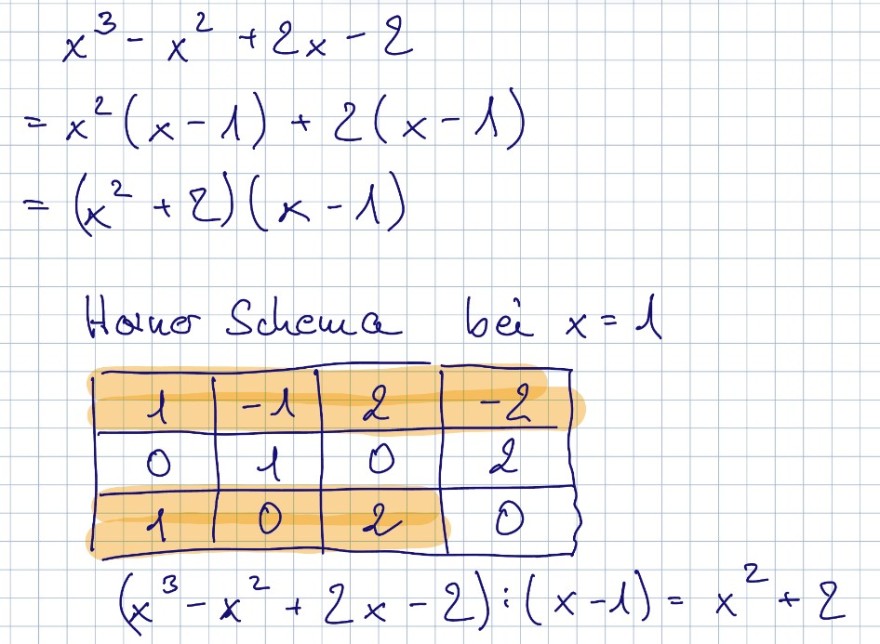 x³ - x² + 2x - 2
= x² (x - 1) + 2 (x - 1)
= (x² + 2) (x - 1)
Horner Schema bei x = 1
1 -1 2 -2
0 1 0 2
1 0 2 0
(x³ - x² + 2x - 2) : (x - 1) = x² + 2